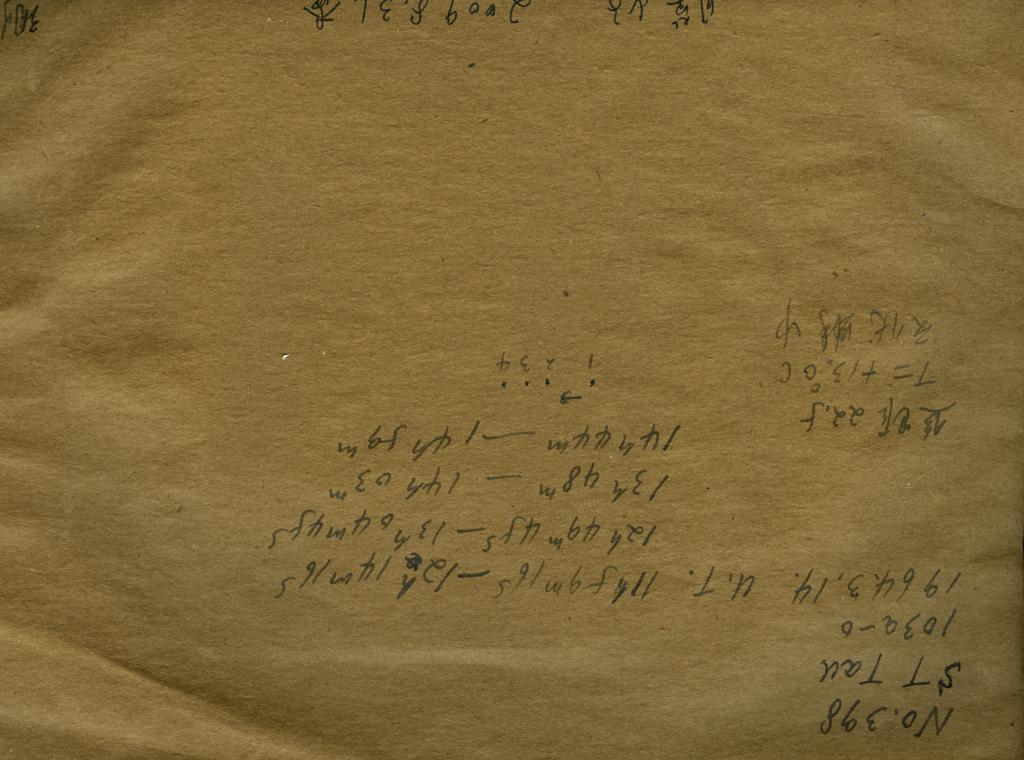 No. 398
ST Tau
103a-0
1964.3.14. U.T. 11h59m16s — 12h14m16s
12h49m45s — 13h04m45s
13h48m — 14h03m
14h44m — 14h59m
→
1 2 3 4
22.5
T=+13.0°C
2009.8.31